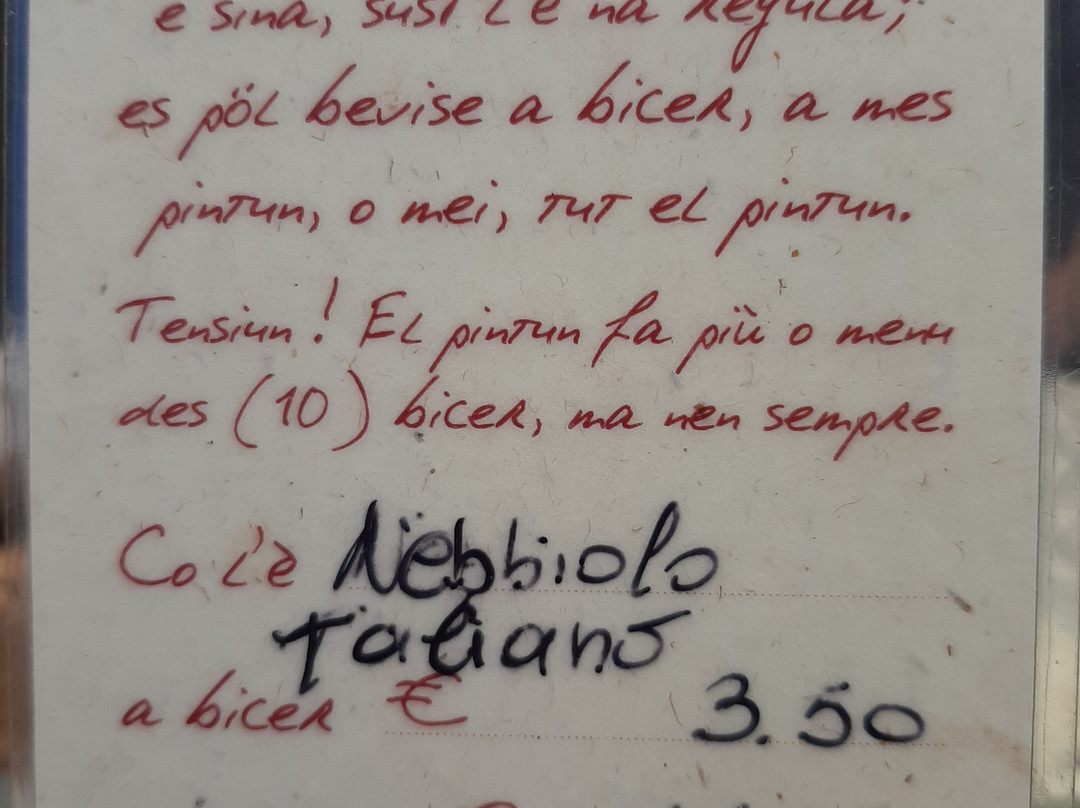 e sina, susì l'è na regula;
es pöl bevise a bicer, a mes
pintun, o mei, tut el pintun.
Tensiun! El pintun fa più o menu
des (10) bicer, ma nen sempre.
Co l'è Nebbiolo
Taliano
a bicer € 3.50